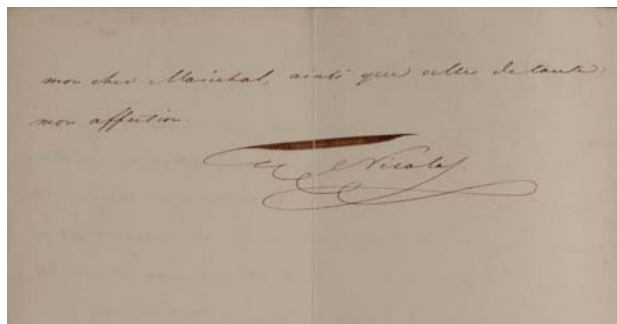 mon cher Maréchal, ainsi que celles de toute
mon affection.
Nicolas